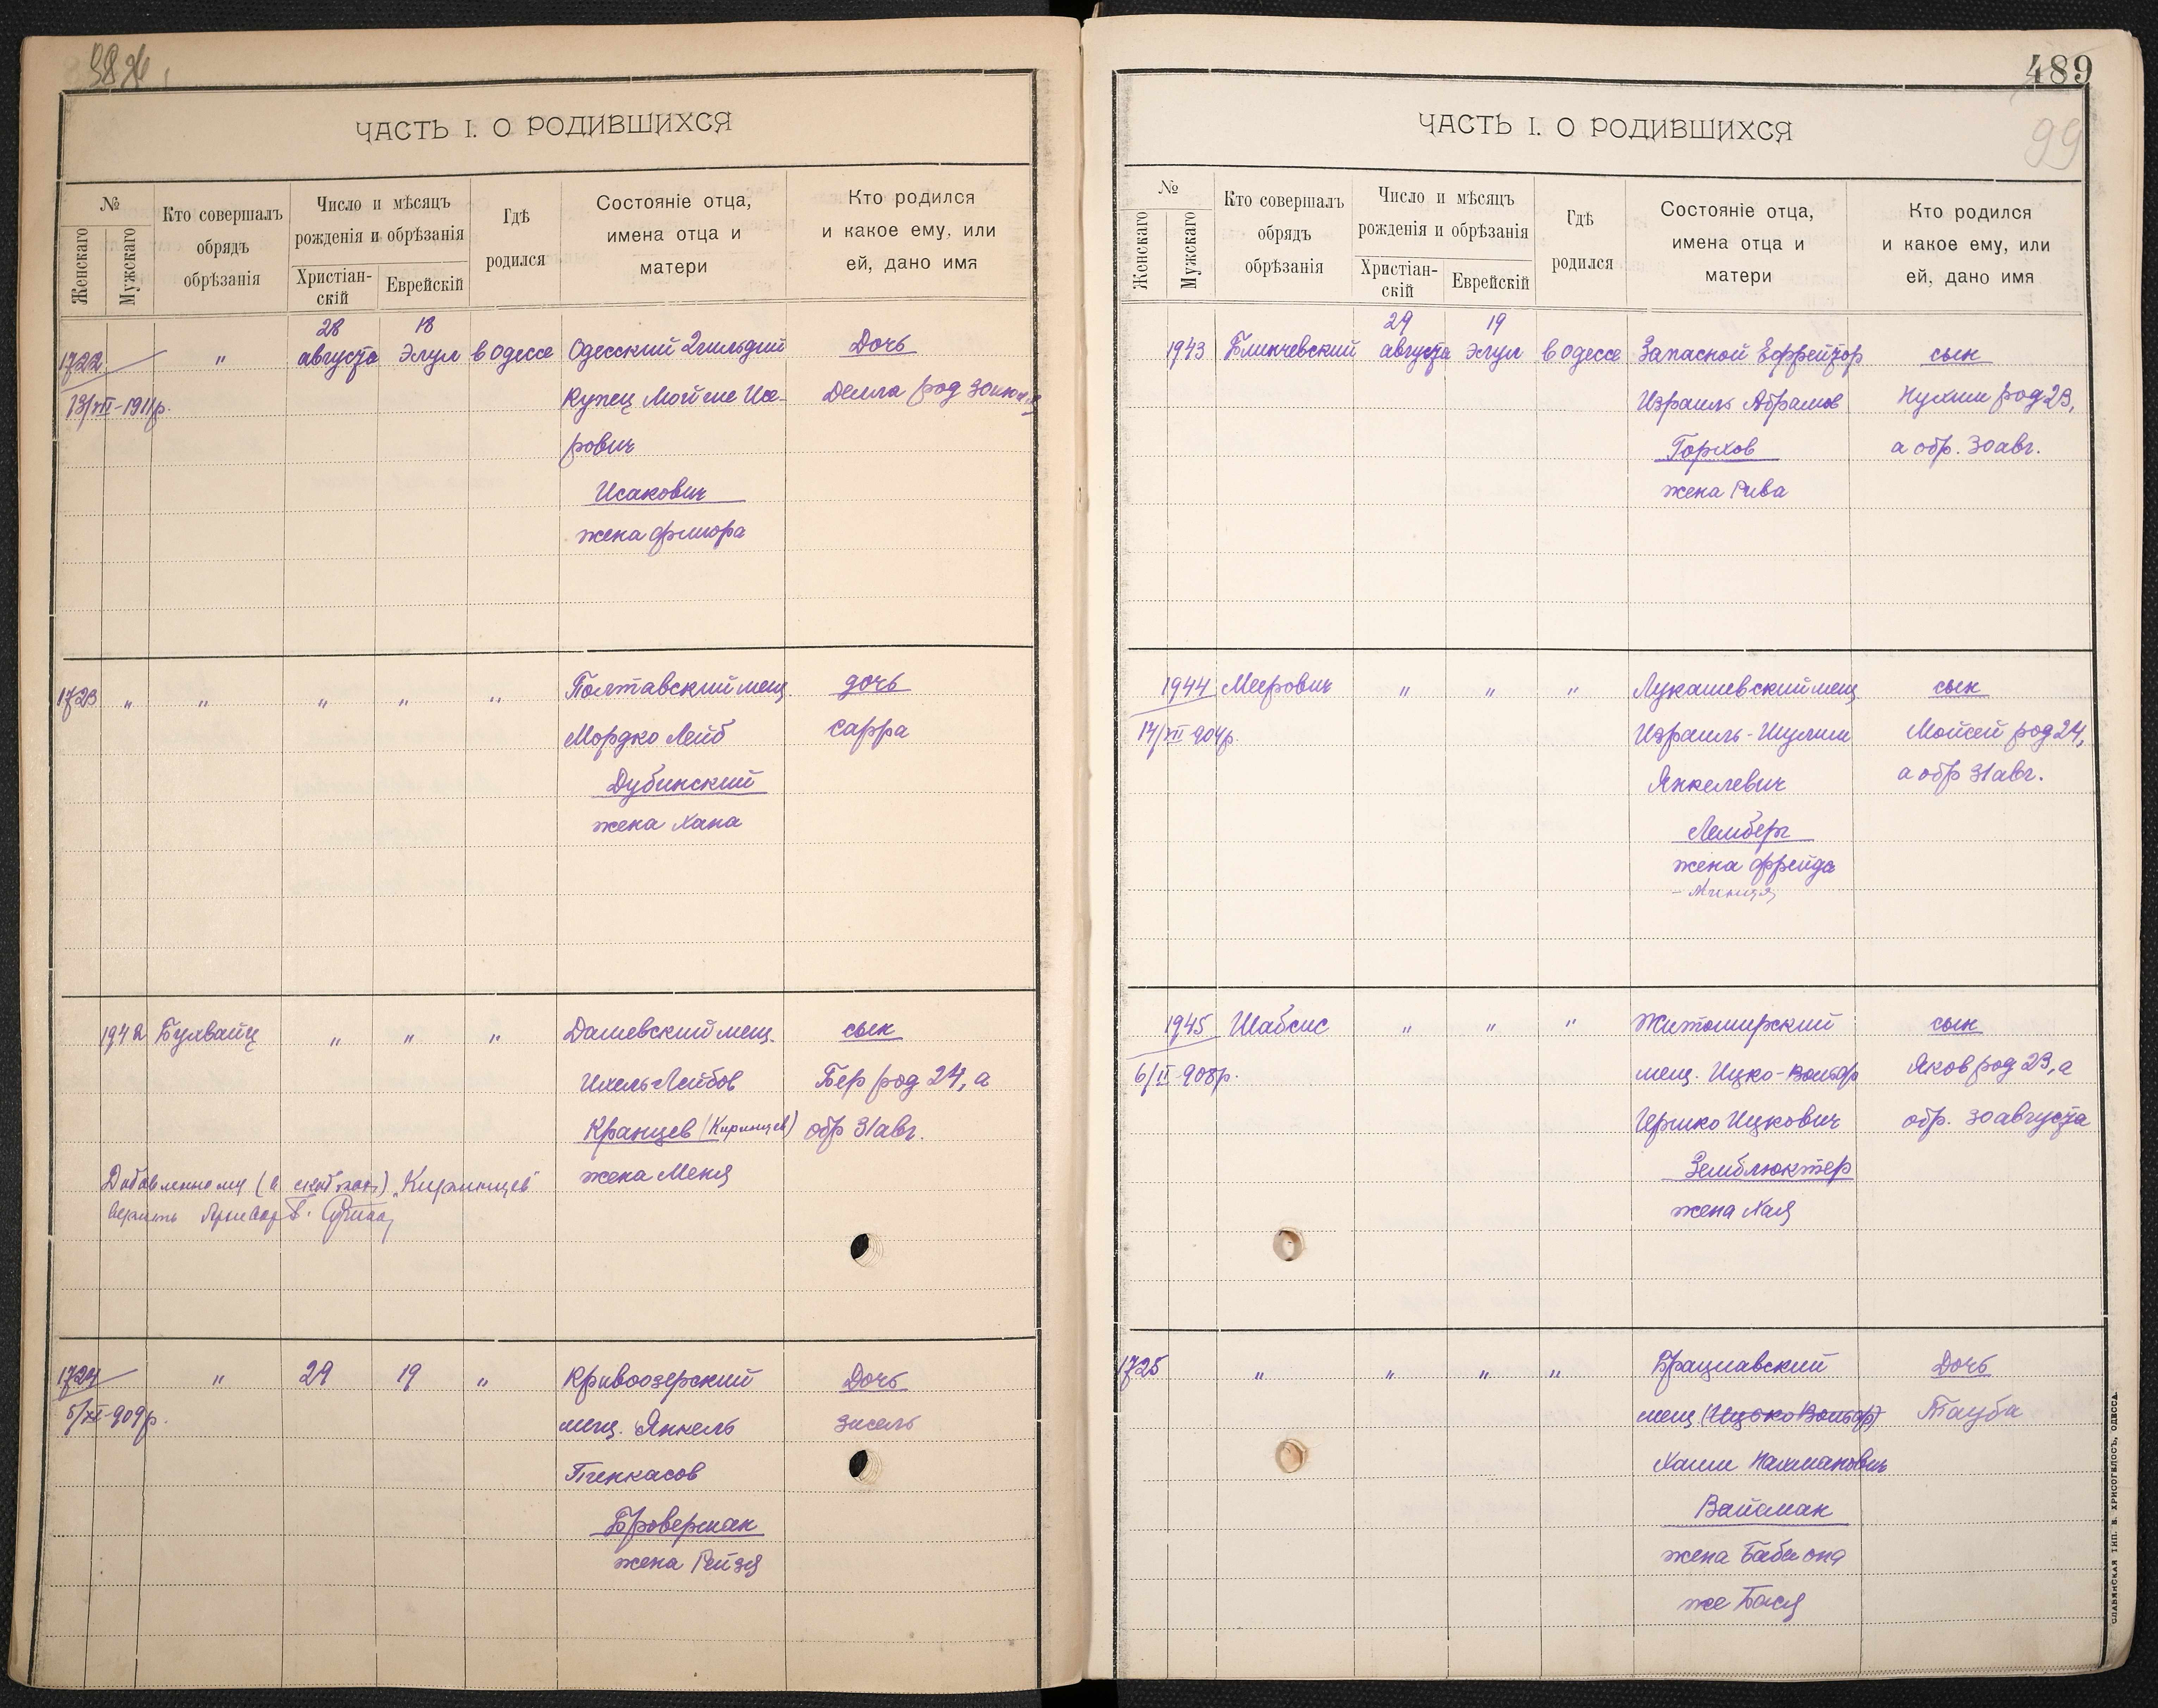 ЧАСТЬ I. О РОДИВШИХСЯ
№
Женскаго
Мужскаго
Кто совершалъ
обрядъ
обрѣзанія
Число и мѣсяцъ
рожденія и обрѣзанія
Христіан-
скій
Еврейскій
Гдѣ
родился
Состояніе отца,
имена отца и
матери
Кто родился
и какое ему, или
ей, дано имя
1722
13/XII-1911р.
"
28
августа
18
Элул
в Одессе
Одесский 2 гильдии
Купец Мойше Иса-
рович
Исакович
жена Флора
Дочь
Делла род 30 июня
1723 " " " " "
Полтавский мещ.
Мордко Лейб
Дубинский
жена Хана
дочь
Сарра
1942 Бухвайц " " "
Дашевский мещ.
Ихель Лейбов
Кранцев (Киринцев)
жена Меня
сын
Бер род 24, а
обр 31 авг.
"Киринцев"
верить
1724
5/XI-909р.
" 29 19 "
Кривоозерский
мещ. Янкель
Пинкасов
Броверман
жена Рейзя
Дочь
Зисель
489
99
ЧАСТЬ I. О РОДИВШИХСЯ
№
Женскаго
Мужскаго
Кто совершалъ
обрядъ
обрѣзанія
Число и мѣсяцъ
рожденія и обрѣзанія
Христіан-
скій
Еврейскій
Гдѣ
родился
Состояніе отца,
имена отца и
матери
Кто родился
и какое ему, или
ей, дано имя
1943 Блинчевский
29
августа
19
Элул
в Одессе
Запасной Ефрейтор
Израиль Абрамов
Горхов
жена Рива
сын
Нухим род 23,
а обр. 30 авг.
1944 Меерович " " "
14/XII 904р.
Лукашевский мещ
Израиль-Шулим
Янкелевич
Лемберг
жена Фрейда
сын
Мойсей род 24,
а обр 31 авг.
1945 Шабсис " " "
6/II-908р.
Житомирский
мещ. Ицко-Вольф
Гершко Ицкович
Земблюктер
жена Хая
сын
Яков род 23, а
обр. 30 августа
1725 " " " "
Брацлавский
мещ (Ицько Вольф)
Хаим Нахманович
Вайсман
жена Баба она
же Бася
Дочь
Тауба
СЛАВЯНСКАЯ ТИП. Н. ХРИСОГЕЛОСЪ, ОДЕССА.